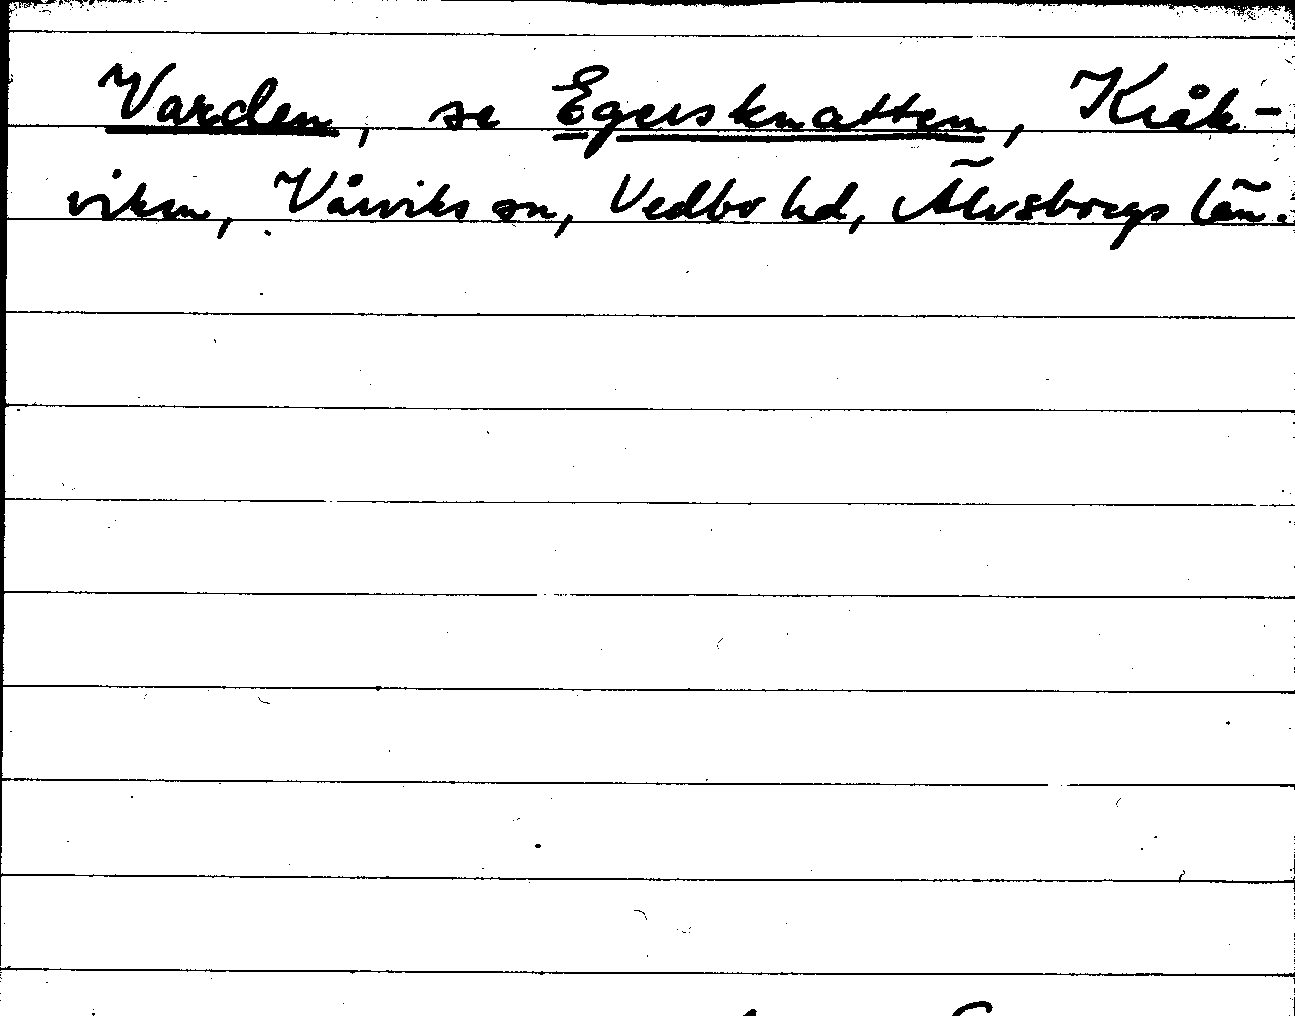 Varden, se Egersknatten, Kråk-
viken, Vårviks sn, Vedbo hd, Älvsborgs län.